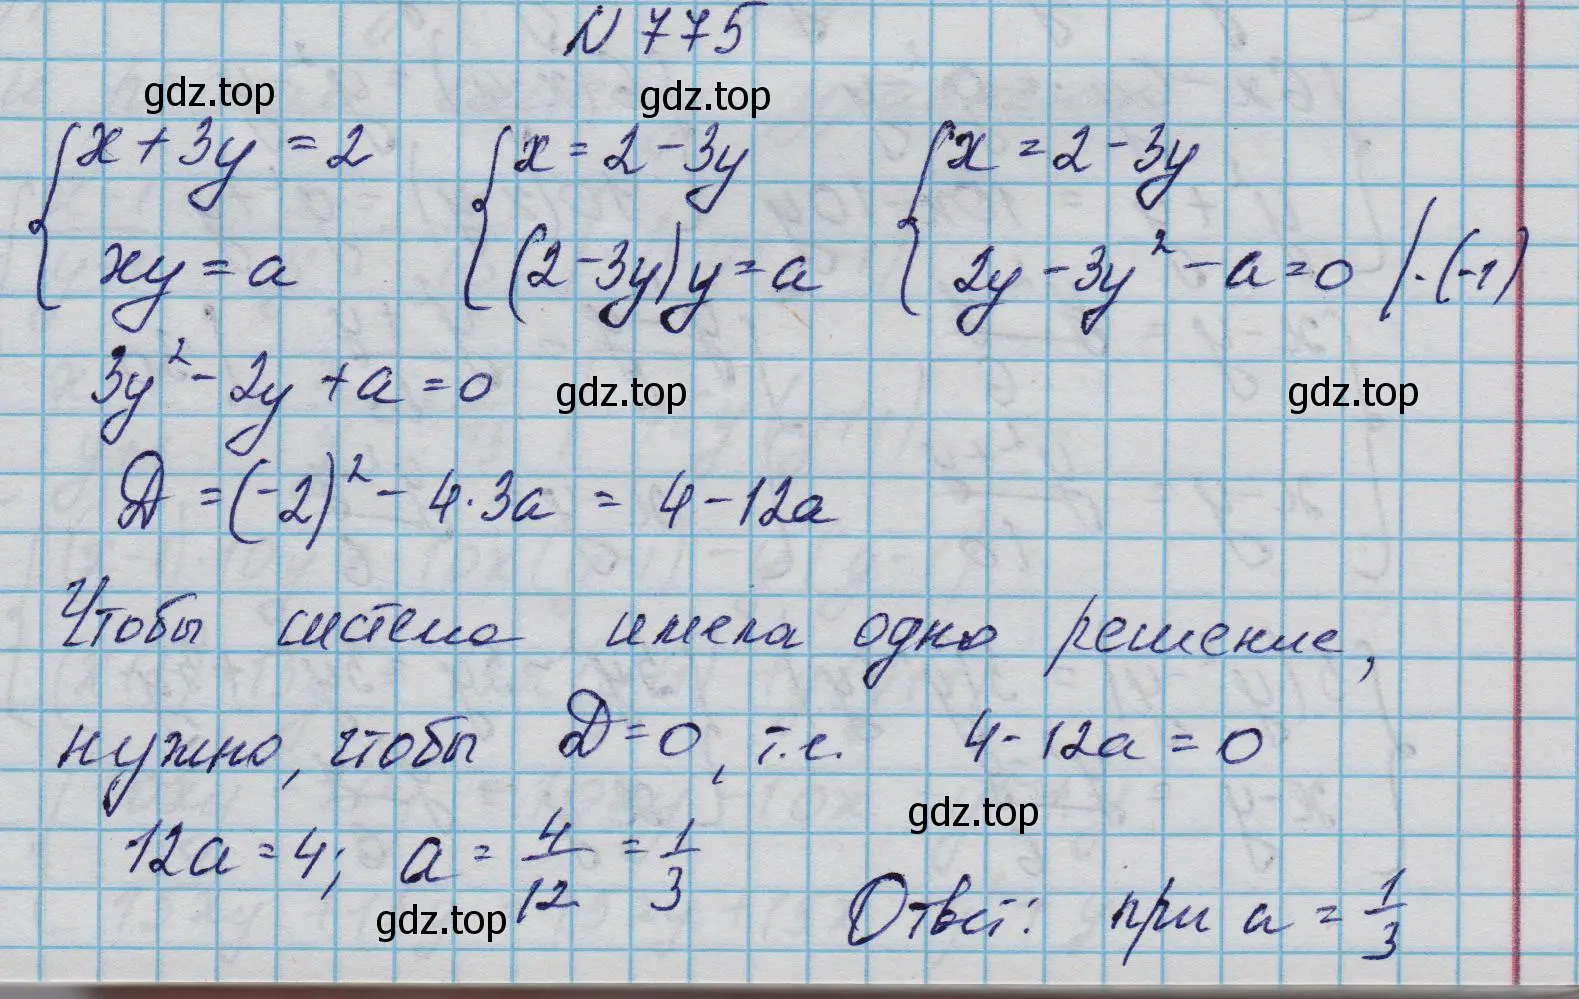 N 775
gdz.top gdz.top
{ x + 3y = 2 { x = 2 - 3y { x = 2 - 3y
xy = a (2 - 3y)y = a 2y - 3y² - a = 0 | · (-1)
3y² - 2y + a = 0 gdz.top gdz.top
D = (-2)² - 4 · 3a = 4 - 12a
Чтобы система имела одно решение,
нужно, чтобы D = 0, т.е. 4 - 12a = 0
gdz.top
12a = 4; a = 4/12 = 1/3
gdz.top Ответ: при a = 1/3